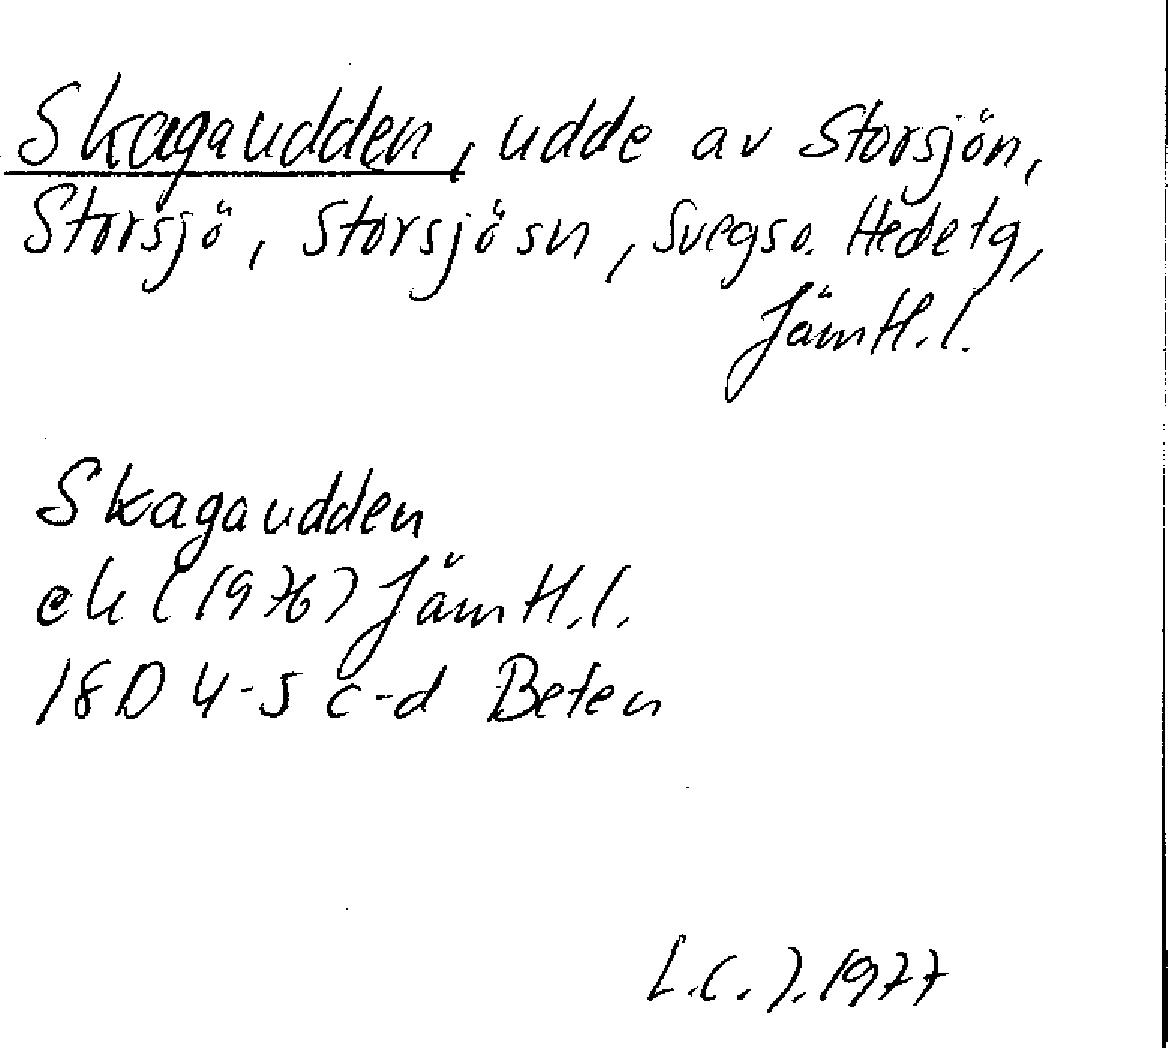 Skagaudden, udde av Storsjön,
Storsjö, Storsjösn, Svegs o. Hedetg,
Jämtl.l.
Skagaudden
ek (1976) Jämtl.l.
18D 4-5 c-d Beten
L.C.J. 1977